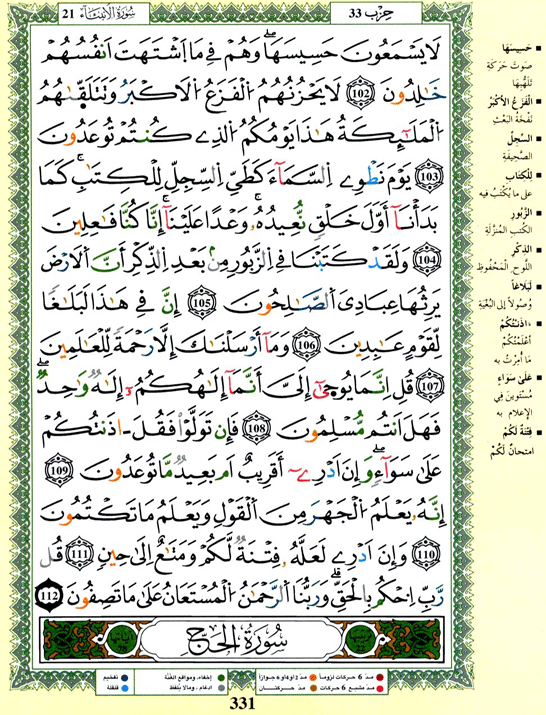 سُورَةُ الْأَنْبِيَاءِ 21
حِزْبُ 33
لَا يَسْمَعُونَ حَسِيسَهَا وَهُمْ فِي مَا اَشْتَهَتَ اَنفُسُهُمْ
خَٰلِدُونَ 102 لَا يَحْزُنُهُمُ الْفَزَعُ الْأَكْبَرُ وَتَتَلَقَّىٰهُمُ
الْمَلَٰٓئِكَةُ هَٰذَا يَوْمُكُمُ الذِے كُنتُمْ تُوعَدُونَ
103 يَوْمَ نَطْوِے السَّمَآءَ كَطَيِّ السِّجِلِّ لِلْكِتَٰبِ كَمَا
بَدَأْنَآ أَوَّلَ خَلْقٍ نُّعِيدُهُۥ وَعْدًا عَلَيْنَآ إِنَّا كُنَّا فَٰعِلِينَ
104 وَلَقَدْ كَتَبْنَا فِي الزَّبُورِ مِنۢ بَعْدِ الذِّكْرِ أَنَّ اَلْأَرْضَ
يَرِثُهَا عِبَادِيَ الصَّٰلِحُونَ 105 إِنَّ فِي هَٰذَا لَبَلَٰغًا
لِّقَوْمٍ عَٰبِدِينَ 106 وَمَآ أَرْسَلْنَٰكَ إِلَّا رَحْمَةً لِّلْعَٰلَمِينَ
107 قُلِ اِنَّمَا يُوحَىٰٓ إِلَيَّ أَنَّمَآ إِلَٰهُكُمُۥٓ إِلَٰهٌ وَٰحِدٌ
فَهَلَ اَنتُم مُّسْلِمُونَ 108 فَإِن تَوَلَّوْاْ فَقُلَ ـاذَنتُكُمْ
عَلَىٰ سَوَآءٍ وَإِنَ اَدْرِےٓ أَقَرِيبٌ اَم بَعِيدٌ مَّا تُوعَدُونَ 109
إِنَّهُۥ يَعْلَمُ الْجَهْرَ مِنَ الْقَوْلِ وَيَعْلَمُ مَا تَكْتُمُونَ
110 وَإِنَ اَدْرِے لَعَلَّهُۥ فِتْنَةٌ لَّكُمْ وَمَتَٰعٌ اِلَىٰ حِينٍ 111 قُل
رَّبِّ اِحْكُم بِالْحَقِّ وَرَبُّنَا الرَّحْمَٰنُ الْمُسْتَعَانُ عَلَىٰ مَا تَصِفُونَ 112
سُورَةُ الْحَجِّ
■ حَسِيسَهَا
صَوْتَ حَرَكَةِ
تَلَهُّبِهَا
■ الْفَزَعُ الْأَكْبَرُ
نَفْخَةُ الْبَعْثِ
■ السِّجِلِّ
الصَّحِيفَةِ
■ لِلْكِتَابِ
على ما يُكْتَبُ فيه
■ الزَّبُورِ
الكتب المُنْزَلَةِ
■ الذِّكْرِ
اللَّوْحِ الْمَحْفُوظِ
■ لَبَلَاغًا
وُصُولاً إلى البُغْيَةِ
■ ءَاذَنتُكُمْ
أَعْلَمْتُكُمْ
مَا أُمِرْتُ به
■ عَلَىٰ سَوَاءٍ
مُسْتَوِينَ فِي
الإعْلام به
■ فِتْنَةٌ لَكُمْ
امتحانٌ لَكُمْ
مدّ 6 حركات لزوماً
مدّ 2 أو 4 أو 6 جوازاً
إخفاء، ومواقع الغُنَّة
تفخيم
مدّ مشبع 6 حركات
مدّ حركتان
إدغام، وما لا يُلفَظ
قلقلة
331